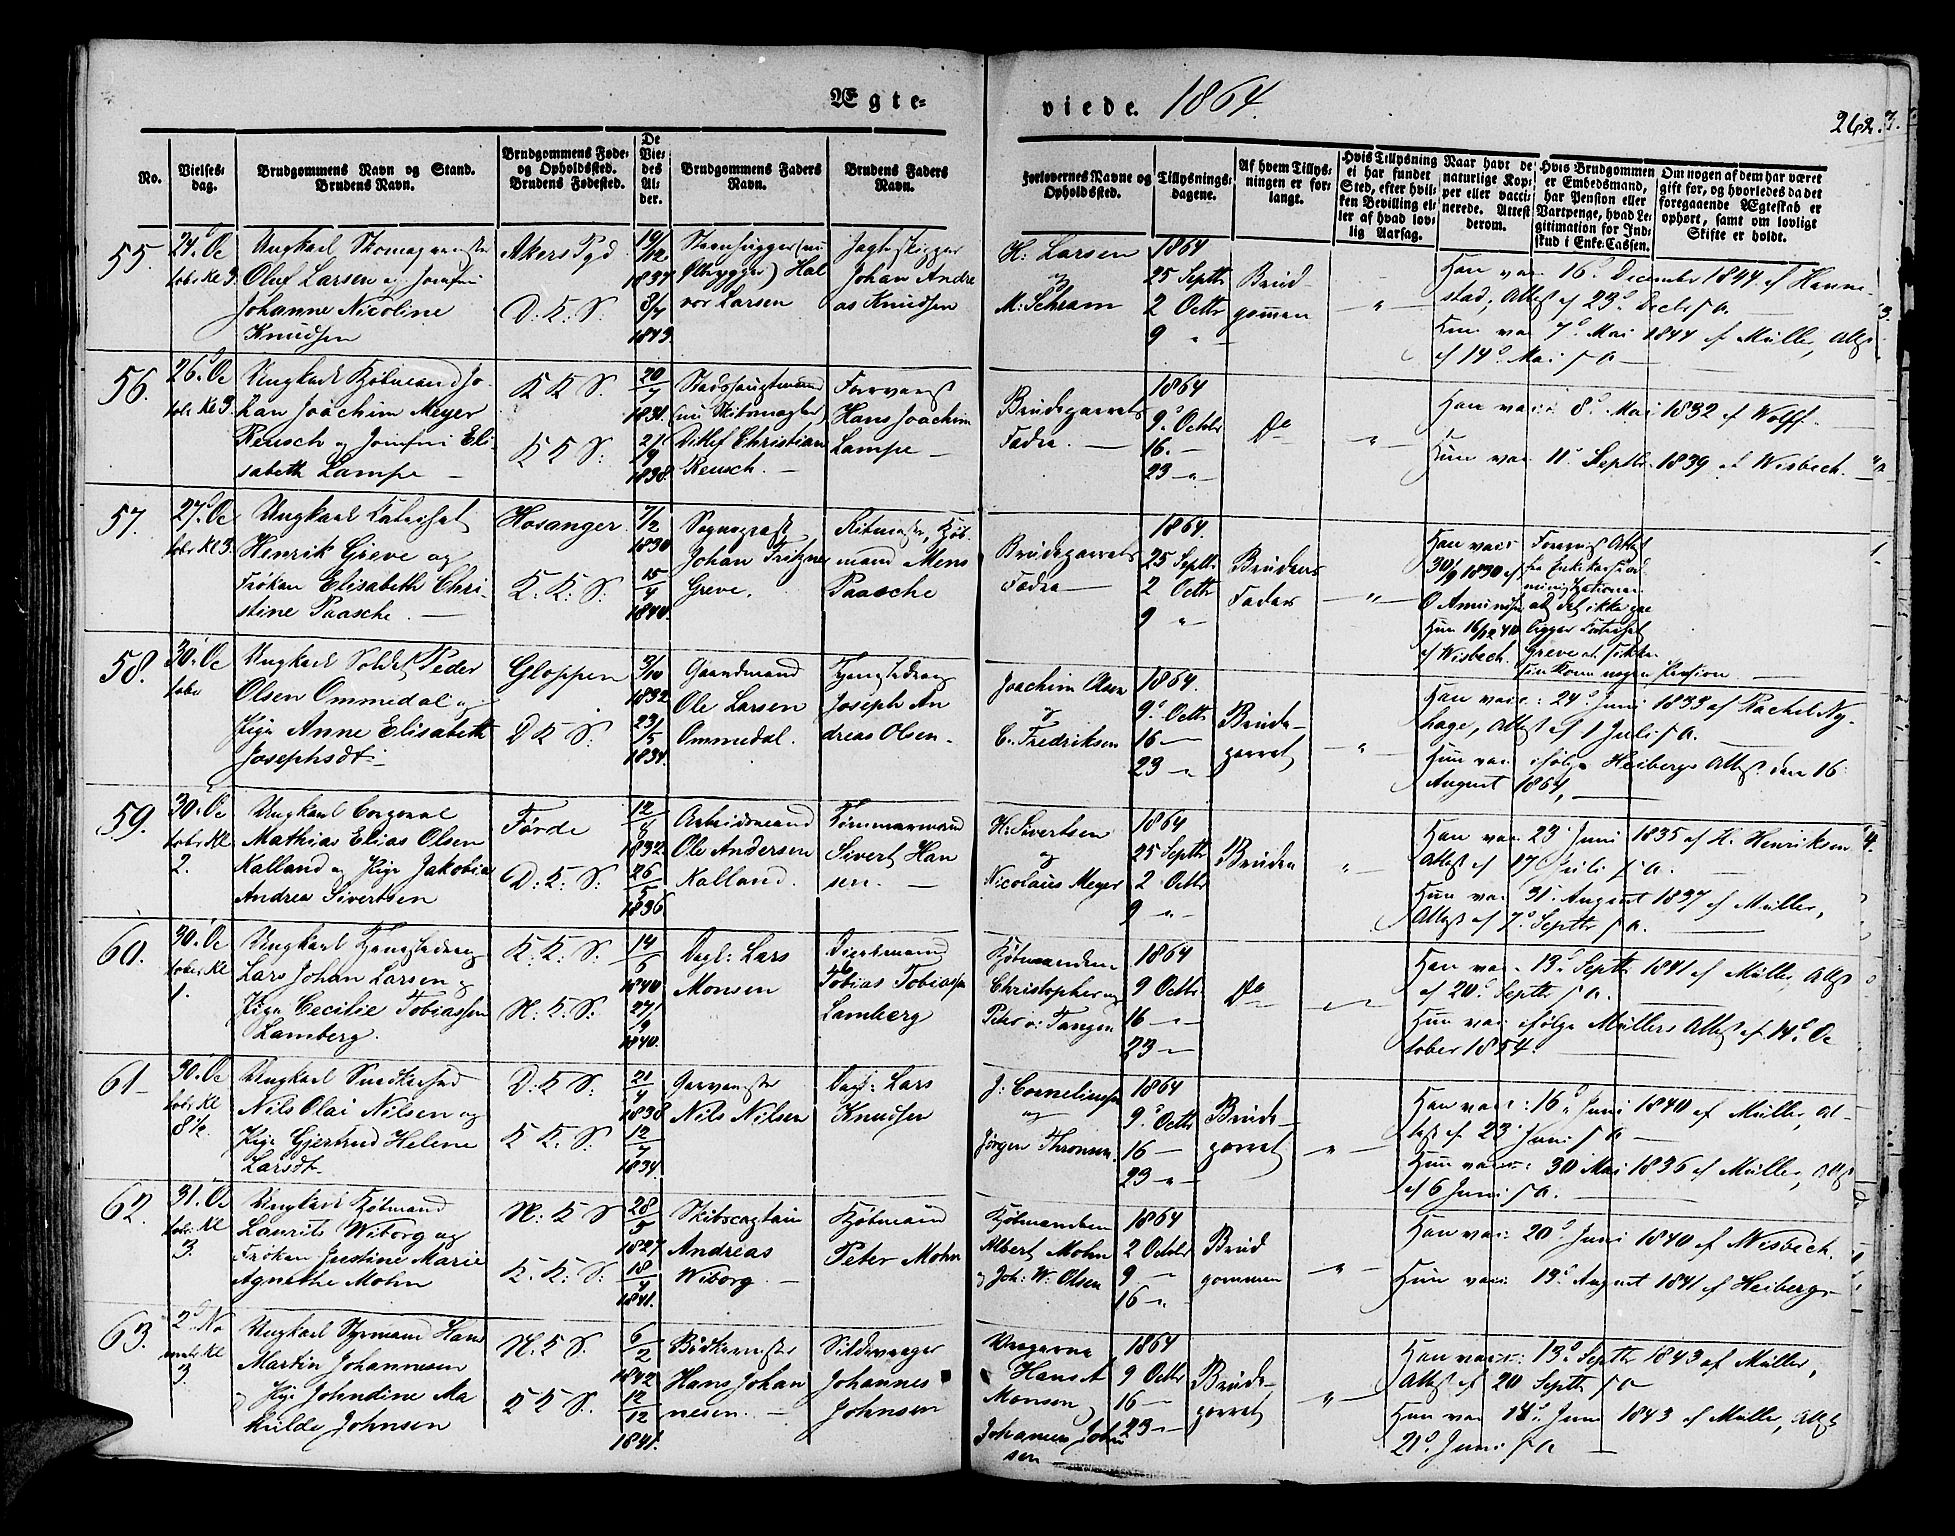 Ægte-
viede. 1864.
262. 3.
No.
Vielses-
dag.
Brudgommens Navn og Stand.
Brudens Navn.
Brudgommens Føde-
og Opholdssted.
Brudens Fødested.
De
Vie-
des
Al-
der.
Brudgommens Faders
Navn.
Brudens Faders
Navn.
Forlovernes Navne og
Opholdssted.
Tillysnings-
dagene.
Af hvem Tillys-
ningen er for-
langt.
Hvis Tillysning
ei har fundet
Sted, efter hvil-
ken Bevilling el-
ler af hvad lov-
lig Aarsag.
Naar havt de
naturlige Kop-
per eller vacci-
nerede. Attest
derom.
Hvis Brudgommen
er Embedsmand,
har Pension eller
Vartpenge, hvad Le-
gitimation for Ind-
skud i Enke-Cassen.
Om nogen af dem har været
gift før, og hvorledes da det
foregaaende Ægteskab er
ophørt, samt om lovligt
Skifte er holdt.
55.
24. Oc
tobr. Kl 3.
Ungkarl Skomagermester
Oluf Larsen og Jomfru
Johanne Nicoline
Knudsen
Akers Pgd
D: K: S.
19/12
1837
3/7
1843.
Steenhugger (nu
Ølbrygger) Hal
vor Larsen
Jagtskipper
Johan Andre
as Knudsen
H: Larsen
og
M: Schram
1864
25 Septbr
2 Octbr
9 "
Brud-
gommen
"
Han vac. 16. December 1844 af Hanne-
stad, Attest af 23. Decbr s. a.
Hun vac. 7. Mai 1844 af Müller, Attest
af 14. Mai s. a.
56.
26. Oc
tobr. Kl 3.
Ungkarl Kjøbmand Jo-
han Joachim Meyer
Reusch og Jomfru Eli-
sabeth Lampe
K K S.
K K S:
20/7
1831.
21/9
1838.
Stadshauptmand
Ditlef Christian
Reusch.
Forvanst
Hans Joachim
Lampe
Brudeparrets
Fædre.
1864
9. Octobr
16.
23 "
Do
"
Han vac: 8. Mai 1832 af Wolff.
Hun vac 11. Septbr. 1839 af Wisbech.
57.
27. Oc
tobr. Kl 3.
Ungkarl Catechet
Henrik Greve og
Frøken Elisabeth Chri-
stine Paasche.
Hosanger
K. K: S:
7/2
1830
15/4
1840.
Sognepræst
Johan Fritzner
Greve.
Ritmester, Kjøb-
mand Mens
Paasche
Brudeparrets
Fædre
1864.
25 Septbr
2 Octbr
9 "
Brudens
Fader
"
Han vac:
30/9 1830 af
O Amundsen
Hun 16/12 40
af Wisbech.
Forevist Attest
fra Enkekassead
ministrationen
at det ikke paa
ligger Catechet
Greve at sikke
sin Kone nogen Pension.
58.
30. Oc
tobr
Ungkarl Soldat Peder
Olsen Ommedal og
Pige Anne Elisabeth
Josephsdt
Gloppen
D K S:
3/10
1832
23/5
1834.
Gaardmand
Ole Larsen
Ommedal.
Joseph An
dreas Olsen
Joachim Olsen
og
C. Fredriksen
1864.
9. Octbr
16
23 "
Brude-
parret
"
Han vac: 24. Juni 1833 af Rachel Ny-
hage, Attest af 1 Juli s. a.
Hun vac. ifølge Heibergs Attest den 16
August 1864,
59.
30. Oc
tobr. Kl
2.
Ungkarl Corporal
Mathias Elias Olsen
Kalland og Pige Jakobia
Andrea Sivertsen
Førde
D: K: S:
12/8
1832.
26/5
1836
Arbeidsmand
Ole Andersen
Kalland.
Tømmermand
Sivert Han
sen.
H: Sivertsen
og
Nicolaus Meyer
1864
25 Septbr
2 Octbr
9 "
Bruden
"
Han vac. 23 Juni 1835 af H. Henriksen
Attest af 17 Juli s. a.
Hun vac. 31. August 1837 af Müller,
Attest af 7. Septbr s. a.
60.
30. Oc
tobr. Kl
1.
Lars Johan Larsen og
Pige Cecilie Tobiassen
Lamberg.
K: K: S:
N: K: S:
14/6
1840
27/9
1840.
Dagl: Lars
Monsen
Tobias Tobiassen
Lamberg
Kjøbmændene
Christopher og
Peter v: Tangen
1864
9 Octbr
16
23
Do
"
Han vac. 13. Septbr 1841 af Müller, Attest
af 20. Septbr s. a.
Hun vac: ifølge Müllers Attest af 14. Oc
tober 1854.
61
30. Oc
tobr. Kl
8 1/2.
Ungkarl Snedkersvend
Nils Olai Nilsen og
Pige Gjertrud Helene
Larsdt.
D: K S.
K K: S:
21/4
1838
12/7
1834.
Garvermester
Nils Nilsen
Dagl: Lars
Knudsen
J: Corneliussen
og
Jørgen Thronsen.
1864
9. Octbr
16
23 "
Brude-
parret
"
Han vac: 16. Juni 1840 af Müller, At-
test af 23 Juni s. a.
Hun vac: 30 Mai 1836 af Müller, Attest
af 6 Juni s. a.
62.
31. Oc
tobr. Kl
3.
Ungkarl Kjøbmand
Laurits Wiborg og
Frøken Justine Marie
Agnethe Mohn
N: K S
K. K: S:
28/5
1827
18/4
1841.
Skibscaptain
Andreas
Wiborg
Kjøbmand
Peter Mohn
Kjøbmændene
Albert Mohn
og Joh: W: Olsen
1864
2 Octobr
9
16 "
Brud
gommen
"
Han vac: 20. Juni 1840 af Wisbech.
Hun vac: 13. August 1841 af Heiberg
63.
2. No
vembr. Kl
3.
Ungkarl Styrmand Hans
Martin Johannesen
og Pige Johndine Ma
thilde Johnsen
N. K S.
K K S.
6/2
1842
12/12
1841.
Bødkermester
Hans Johan
nesen.
Sildevrager
Johannes
Johnsen
Vragerne
Hans A
Monsen,
Johannes John
sen
1864
9 Octbr
16
23
Brude-
parret
"
Han vac: 13. Septbr 1843 af Müller,
Attest af 20 Septbr s. a
Hun vac 14. Juni 1843 af Müller, Attest
21. Juni s. a